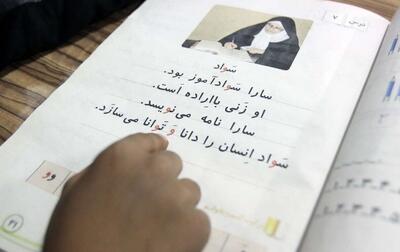 درس ۷
سَواد
سارا سَوادآموز بود.
او زَنی بااِراده است.
سارا نامه می‌نویسد.
سَواد اِنسان را دانا وَ تَوانا می‌سازَد.
و و
۳۱